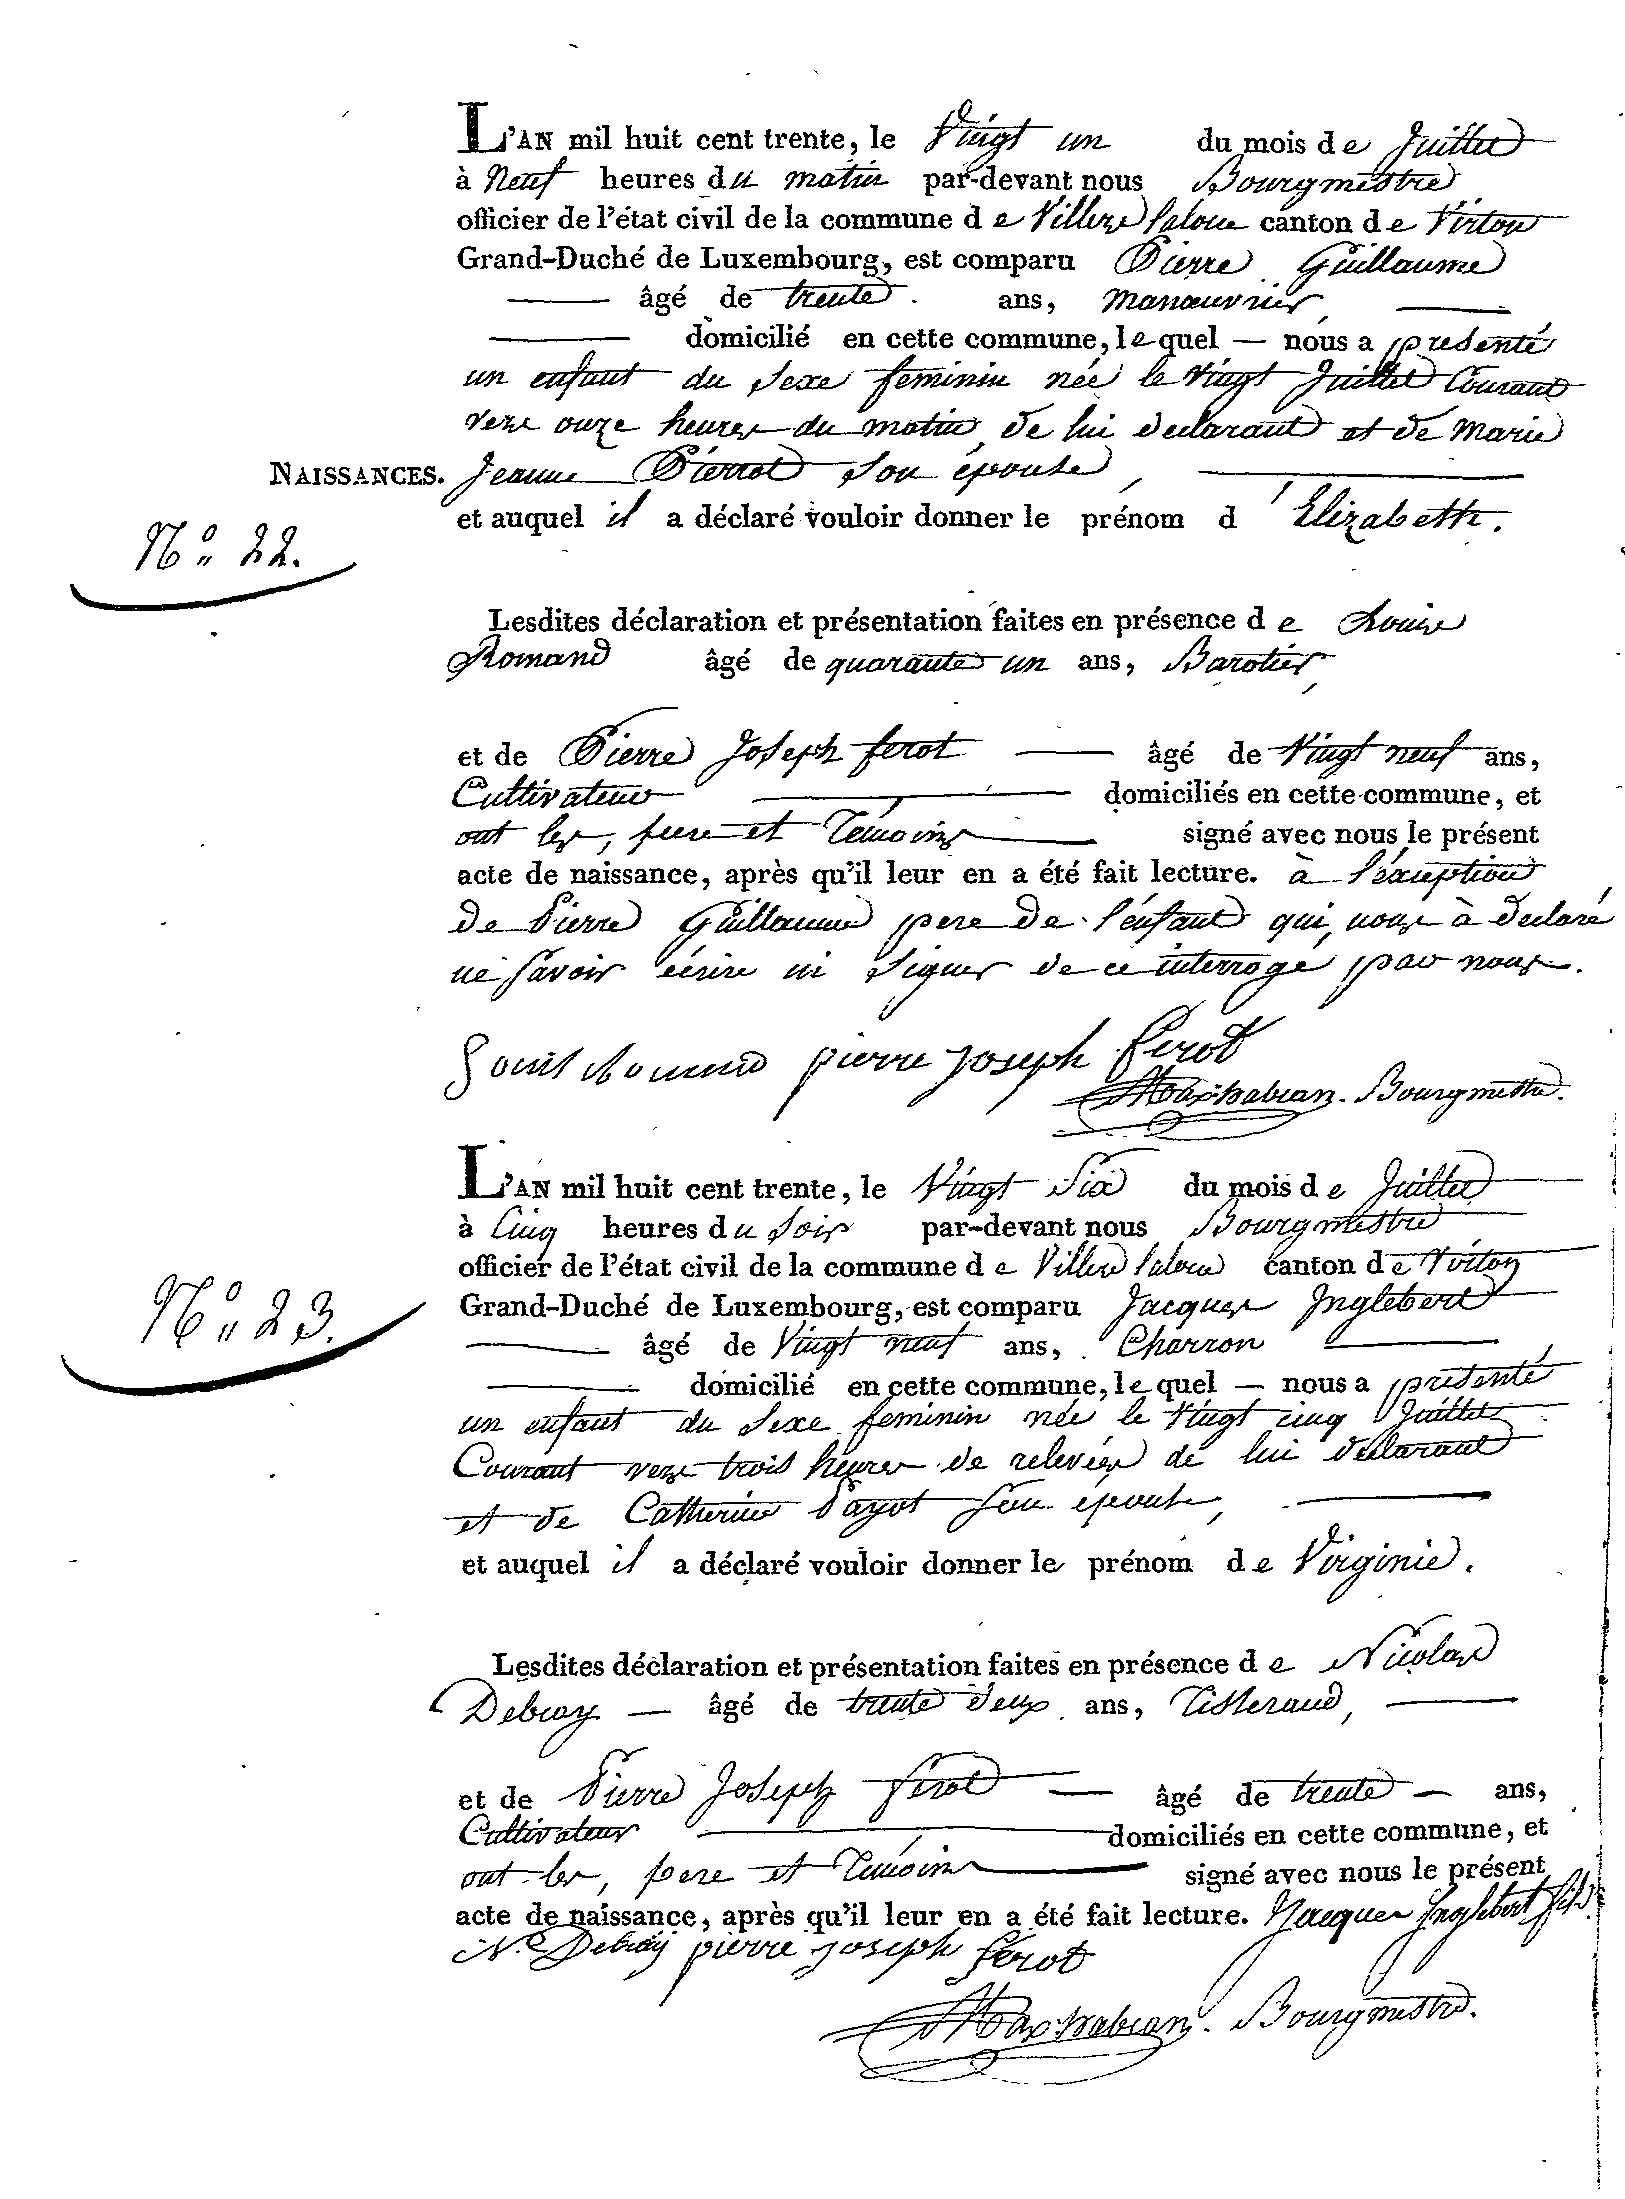 L'AN mil huit cent trente, le Vingt un du mois de Juillet
à Neuf heures du matin par-devant nous Bourgmestre
officier de l'état civil de la commune de Villers laloue canton de Virton
Grand-Duché de Luxembourg, est comparu Pierre Guillaume
âgé de trente ans, manœuvrier,
domicilié en cette commune, lequel — nous a présenté
un enfant du sexe feminin née le vingt Juillet Courant
vers onze heures du matin, de lui declarant et de Marie
NAISSANCES. Jeanne Pierrot son épouse,
et auquel il a déclaré vouloir donner le prénom d'Elizabeth.
N° 22.
Lesdites déclaration et présentation faites en présence de Louis
Romand âgé de quarante un ans, Barotier,
et de Pierre Joseph ferot — âgé de Vingt neuf ans,
Cultivateur domiciliés en cette commune, et
ont les, pere et Témoins signé avec nous le présent
acte de naissance, après qu'il leur en a été fait lecture. à l'éxception
de Pierre Guillaume pere de l'enfant qui, nous à declaré
ne savoir écrire ni signer de ce interrogé par nous.
Louis Romand pierre joseph ferot
Bourgmestre.
L'AN mil huit cent trente, le Vingt Six du mois de Juillet
à Cinq heures du soir par-devant nous Bourgmestre
officier de l'état civil de la commune de Villers laloue canton de Virton
N° 23.
Grand-Duché de Luxembourg, est comparu Jacques Inglebert
âgé de Vingt neuf ans, Charron
domicilié en cette commune, lequel — nous a présenté
un enfant du sexe feminin née le vingt cinq Juillet
Courant vers trois heures de relevées de lui declarant
et de Catherine Payot son épouse,
et auquel il a déclaré vouloir donner le prénom de Virginie.
Lesdites déclaration et présentation faites en présence de Nicolas
Debray — âgé de trente deux ans, Tisserand,
et de Pierre Joseph ferot — âgé de trente — ans,
Cultivateur domiciliés en cette commune, et
ont les, pere et Témoins signé avec nous le présent
acte de naissance, après qu'il leur en a été fait lecture. Jacques Inglebert fils
N. Debray pierre joseph ferot
Bourgmestre.